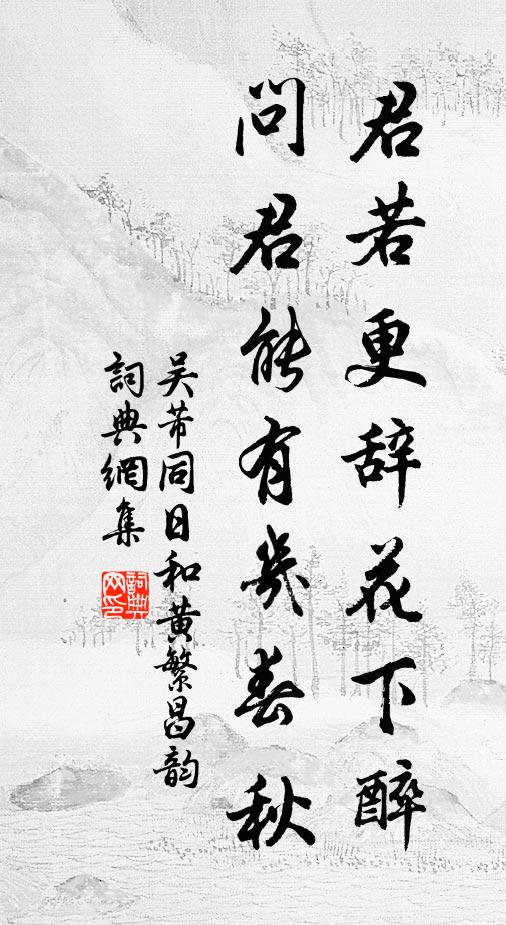 君若更辞花下醉
问君能有几春秋
吴芾同日和黄繁昌韵
詞典網集
詞典网印